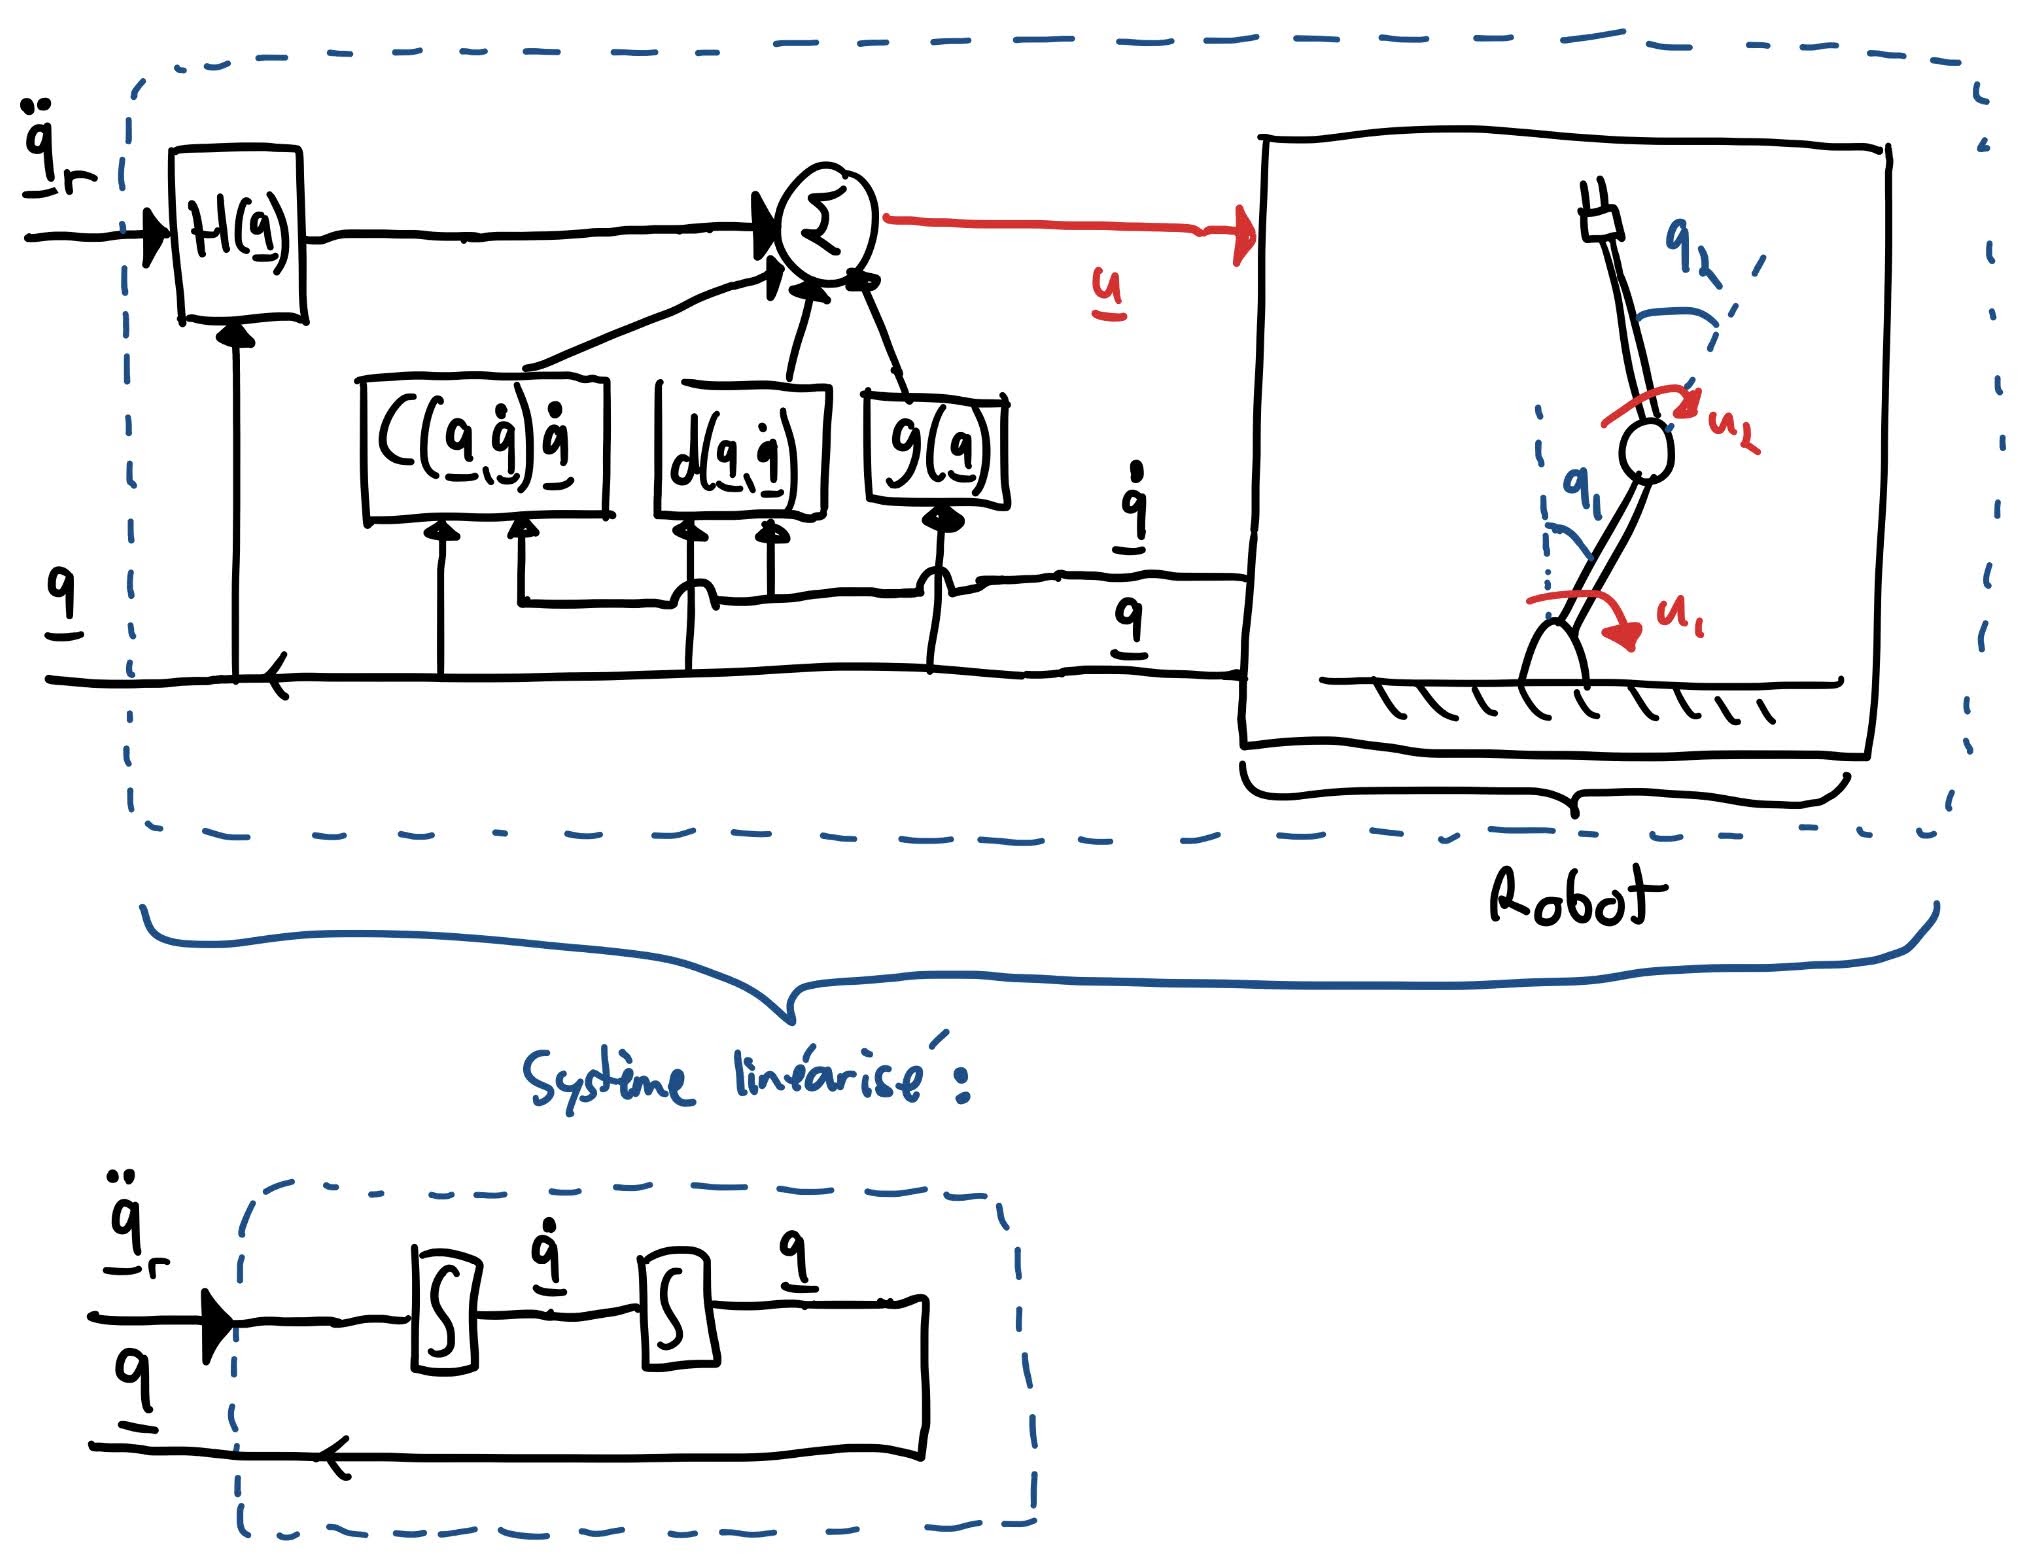 q̈r
H(q)
Σ
u
q2
u2
C(q,q̇)q̇
d(q,q̇)
g(q)
q̇
q1
q
q
u1
Robot
Système linéarisé :
q̈r
∫
q̇
∫
q
q